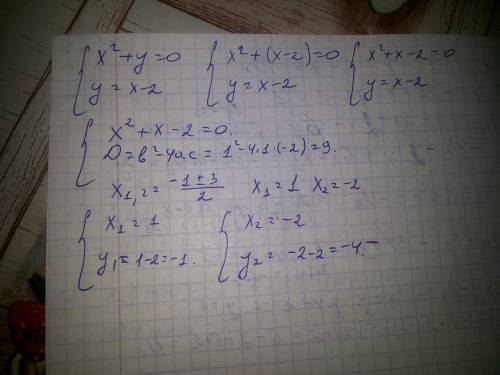 { x² + y = 0   { x² + (x-2) = 0   { x² + x - 2 = 0
{ y = x - 2   { y = x - 2   { y = x - 2
{ x² + x - 2 = 0.
{ D = в² - 4ac = 1² - 4·1·(-2) = 9.
x₁,₂ = (-1 ± 3)/2   x₁ = 1   x₂ = -2
{ x₁ = 1   { x₂ = -2
{ y₁ = 1-2 = -1.   { y₂ = -2-2 = -4.